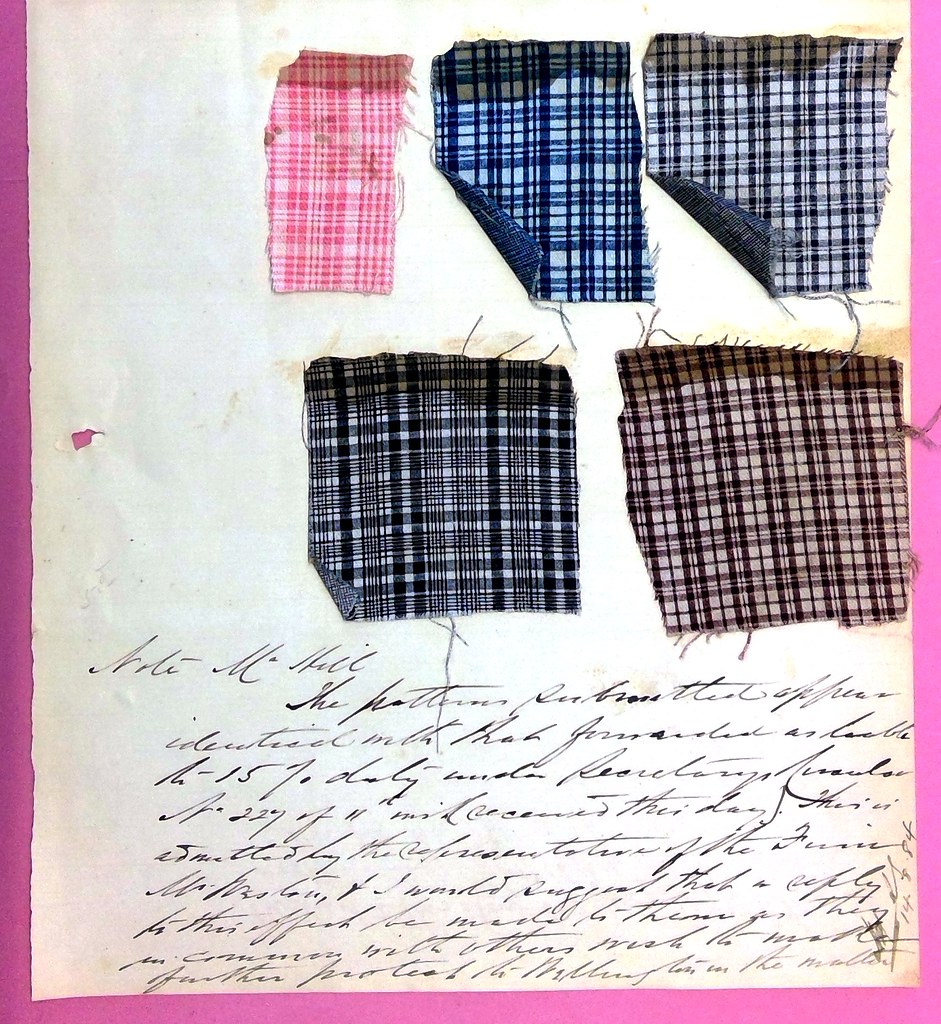 Note Mr Hill
The patterns submitted appear
identical with that forwarded as liable
to 15 % duty under Secretarys Circular
No 227 of 11th inst (received this day). This is
admitted by the representative of the Firm
Mr Weston, & I would suggest that a reply
to this effect be made to them as they
in common with others wish to make
further protest to Wellington in the matter
14.8.84